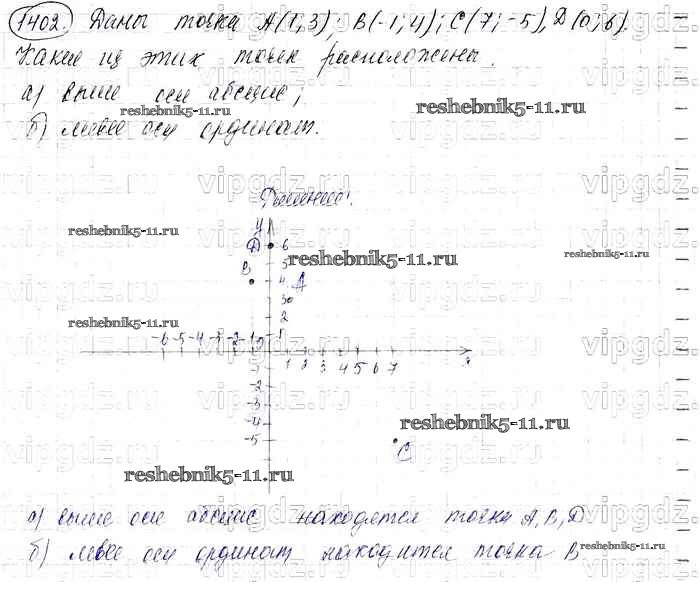 1402. Даны точки A(1; 3); B(-1; 4); C(7; -5), D(0; 6).
Какие из этих точек расположены.
а) выше оси абсцисс;
reshebnik5-11.ru
reshebnik5-11.ru
б) левее оси ординат.
vipgdz.ru vipgdz.ru vipgdz.ru vipgdz.
Решение:
reshebnik5-11.ru
y
D 6
reshebnik5-11.ru
reshebnik5-11.ru
B 5
4 A
3
reshebnik5-11.ru
2
-6 -5 -4 -3 -2 -1 0 1
1 2 3 4 5 6 7 x
-2
-3
-4
-5
reshebnik5-11.ru
C
reshebnik5-11.ru
а) выше оси абсцисс находятся точки A, B, D
б) левее оси ординат находится точка B
reshebnik5-11.ru